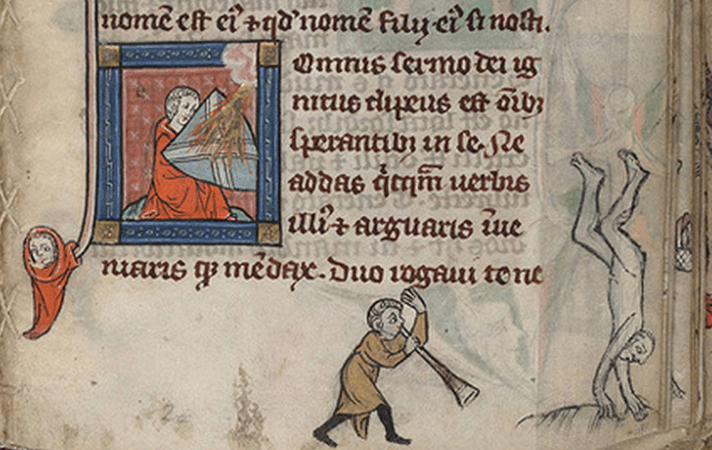 nomē est eiꝰ ⁊ qd' nomē filij eiꝰ si nosti.
Omnis sermo dei ig
nitus clipeus est oīb;
sperantib; in se. Ne
addas q̇cq̄m uerbis
illiꝰ ⁊ arguaris īue
niaris qꝫ mēdax. Duo rogaui te ne